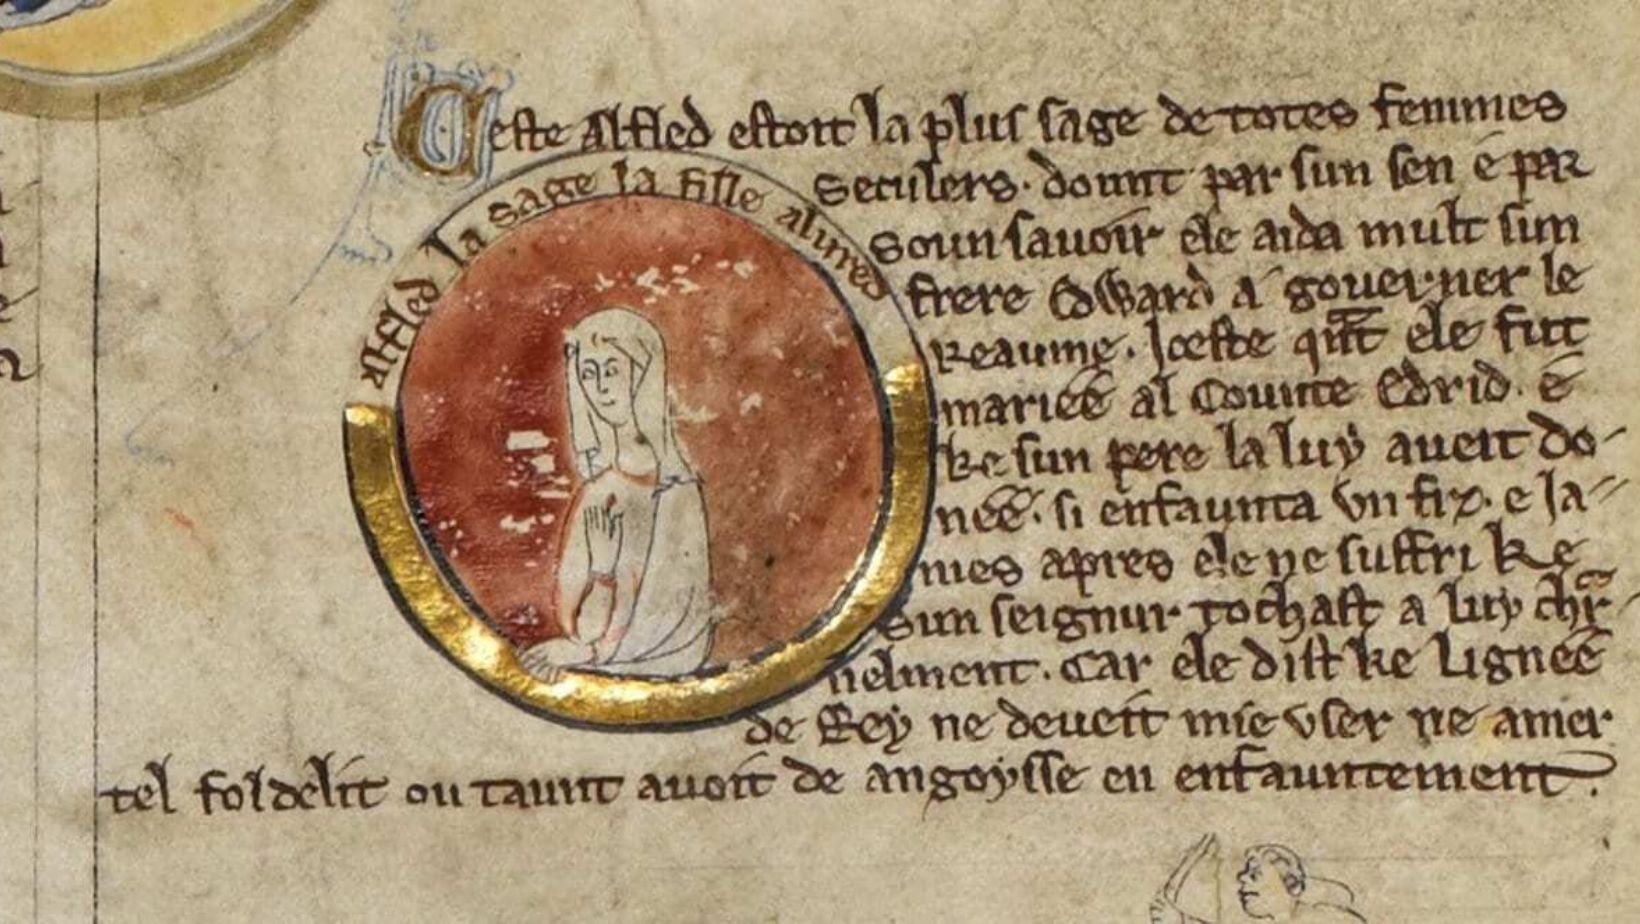 Ceste Alfled estoit la plus sage de totes femmes
seculers. dount par sun sen e par
soun sauoir ele aida mult sun
frere Edward a gouerner le
Reaume. Iceste qnt ele fut
mariee al Counte Edrid. e
ke sun pere la luy aueit do-
nee. si enfaunta vn fiz. e Ja-
mes apres ele ne suffri ke
sun seignur tochast a luy char-
nelment. Car ele dist ke Lignee
de Rey ne deueit mie vser ne amer
tel fol delit ou taunt auoit de angoysse en enfauntement.
Alfled la sage la fille alured